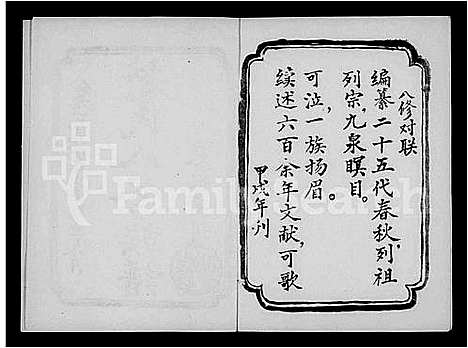 八修对联
编纂二十五代春秋,列祖
列宗,九泉瞑目。
续述六百余年文献,可歌
可泣,一族扬眉。
甲戌年刊
FamilySearch